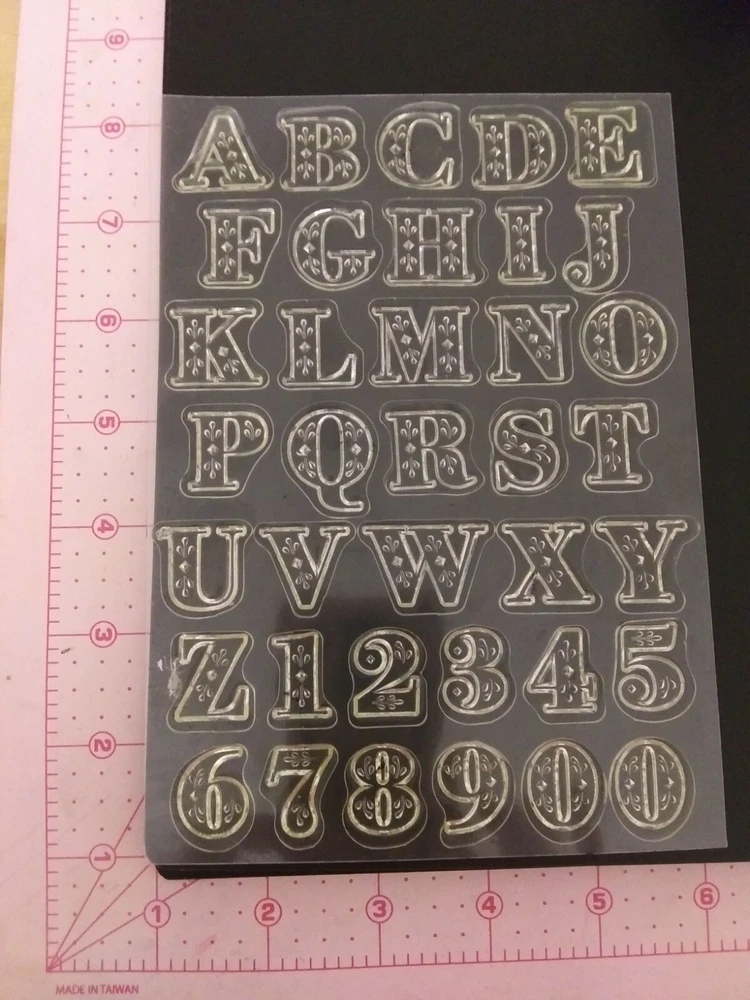 9
8
A B C D E
7
F G H I J
6
K L M N O
5
P Q R S T
4
U V W X Y
3
Z 1 2 3 4 5
2
6 7 8 9 0 0
1
1 2 3 4 5 6
MADE IN TAIWAN